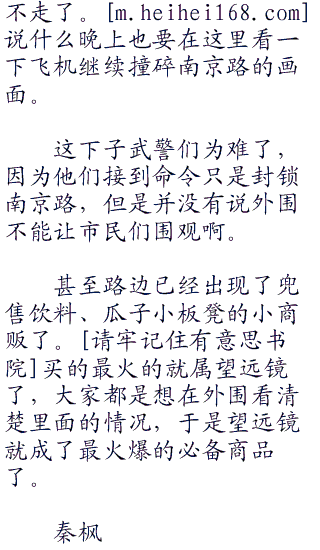 不走了。[m.heihei168.com]
说什么晚上也要在这里看一
下飞机继续撞碎南京路的画
面。
这下子武警们为难了，
因为他们接到命令只是封锁
南京路，但是并没有说外围
不能让市民们围观啊。
甚至路边已经出现了兜
售饮料、瓜子小板凳的小商
贩了。[请牢记住有意思书
院]买的最火的就属望远镜
了，大家都是想在外围看清
楚里面的情况，于是望远镜
就成了最火爆的必备商品
了。
秦枫